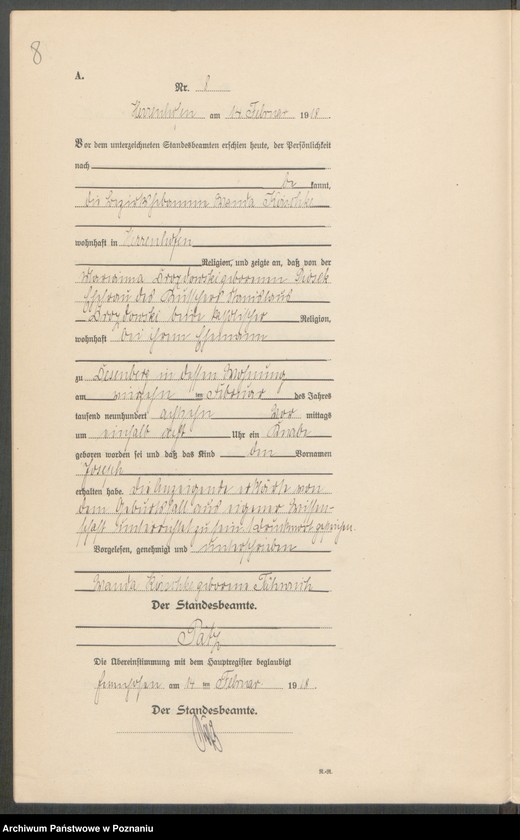 8
A.
Nr. 8
Herrenhofen am 14. Februar 1918.
Vor dem unterzeichneten Standesbeamten erschien heute, der Persönlichkeit
nach
be kannt,
die Bezirkshebamme Wanda Kirschke
wohnhaft in Herrenhofen
Religion, und zeigte an, daß von der
Marianna Drozdowski geborenen
Ehefrau des Kutschers Stanislaus
Drozdowski beide katholischer Religion,
wohnhaft bei ihrem Ehemann
zu in dessen Wohnung
am vierzehn ten Februar des Jahres
tausend neunhundert achtzehn Vor mittags
um einhalb acht Uhr ein Knabe
geboren worden sei und daß das Kind den Vornamen
Joseph
erhalten habe. Die Anzeigende erklärte von
dem Geburtsfall aus eigener Wissen-
schaft unterrichtet zu sein. 1 Druckwort gestrichen.
Vorgelesen, genehmigt und unterschrieben
Wanda Kirschke geborene
Der Standesbeamte.
Pätz
Die Übereinstimmung mit dem Hauptregister beglaubigt
Herrenhofen am 14. ten Februar 1918.
Der Standesbeamte.
Pätz
N.-R.
Archiwum Państwowe w Poznaniu